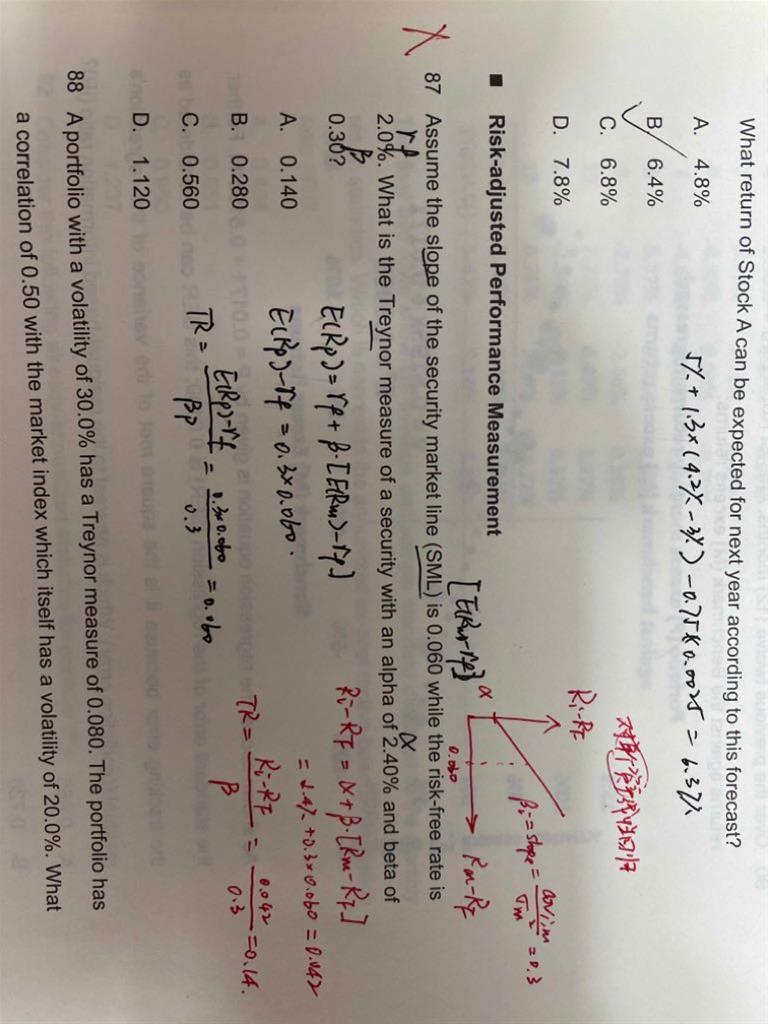 What return of Stock A can be expected for next year according to this forecast?
A. 4.8%
B. 6.4%
C. 6.8%
D. 7.8%
5% + 1.3×(4.2% - 3%) - 0.75×0.0025 = 6.37%
■ Risk-adjusted Performance Measurement
Ri-RF
α
Rm-RF
0.060
βi = slope = cov i,m / σm² = 0.3
[E(Rm)-rf]
87 Assume the slope of the security market line (SML) is 0.060 while the risk-free rate is
rf
α
2.0%. What is the Treynor measure of a security with an alpha of 2.40% and beta of
β
0.30?
A. 0.140
B. 0.280
C. 0.560
D. 1.120
E(Rp) = rf + β·[E(Rm)-rf]
E(Rp)-rf = 0.3×0.060.
TR = E(Rp)-rf / βp = 0.3×0.060 / 0.3 = 0.060
Ri-RF = α+β·[Rm-RF]
= 2.4% + 0.3×0.060 = 0.042
TR = Ri-RF / β = 0.042 / 0.3 = 0.14.
88 A portfolio with a volatility of 30.0% has a Treynor measure of 0.080. The portfolio has
a correlation of 0.50 with the market index which itself has a volatility of 20.0%. What